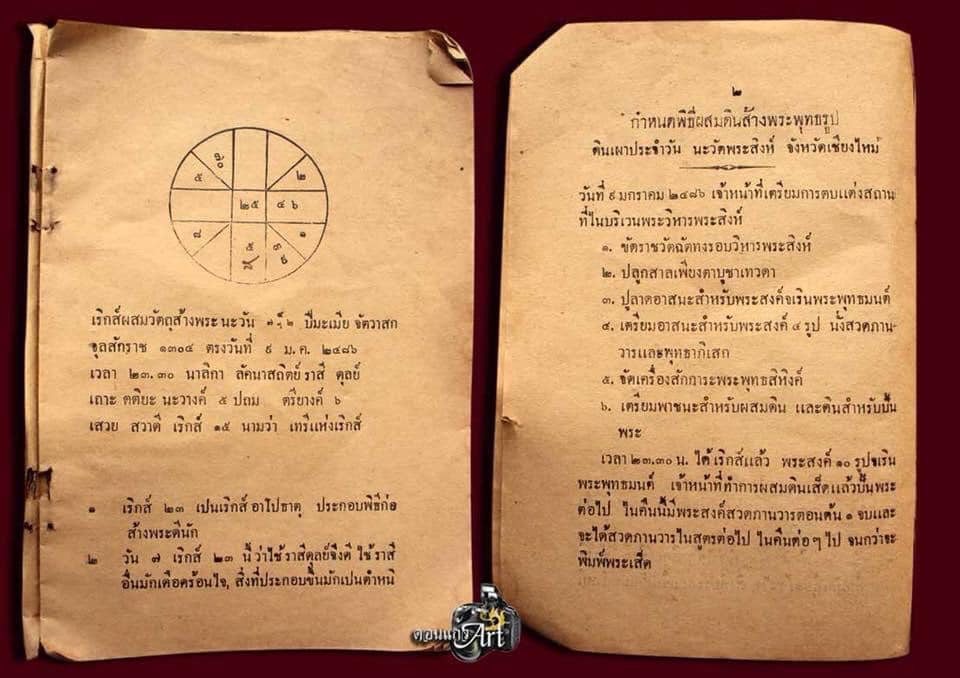 ๕
๒
๒ ๕
๔ ๖
๘
๑
เริกส์ผสมวัตถุส้างพระ นะวัน ปีมะเมีย จัตวาสก
จุลสักราช ๑๓๐๔ ตรงวันที่ ๙ ม.ค. ๒๔๘๖
เวลา ๒๓.๓๐ นาลิกา ลัคนาสถิตย์ ราสี ตุลย์
เถาะ ตติยะ นะวางค์ ๕ ปถม ตรียางค์ ๖
เสวย สวาตี เริกส์ ๑๕ นามว่า เทรีแห่งเริกส์
๑ เริกส์ ๒๓ เปนเริกส์ อาโปธาตุ ประกอบพิธีก่อ
ส้างพระดีนัก
๒ วัน ๗ เริกส์ ๒๓ นี้ ว่าใช้ราสีตุลย์จึงดี ใช้ราสี
อื่นมักเดือดร้อนใจ, สิ่งที่ประกอบขึ้นมักเปนตำหนิ
๒
กำหนดพิธีผสมดินส้างพระพุทธรูป
ดินเผาประจำวัน นะวัดพระสิงห์ จังหวัดเชียงไหม่
วันที่ ๙ มกราคม ๒๔๘๖ เจ้าหน้าที่เตรียมการตบแต่งสถาน
ที่ไนบริเวนพระวิหารพระสิงห์
๑. ขัดราชวัตฉัตทงรอบวิหารพระสิงห์
๒. ปลูกสาลเพียงตาบูชาเทวดา
๓. ปูลาดอาสนะสำหรับพระสงค์จเรินพระพุทธมนต์
๔. เตรียมอาสนะสำหรับพระสงค์ ๔ รูป นั่งสวดภาน-
วารและพุทธาภิเสก
๕. จัดเครื่องสักการะพระพุทธสิหิงค์
๖. เตรียมพาชนะสำหรับผสมดิน และดินสำหรับปั้น
พระ
เวลา ๒๓.๓๐ น. ได้เริกส์แล้ว พระสงค์ ๑๐ รูปจเริน
พระพุทธมนต์ เจ้าหน้าที่ทำการผสมดินเส็ดแล้วปั้นพระ
ต่อไป ไนคืนนี้มีพระสงค์สวดภานวารตอนต้น ๑ จบและ
จะได้สวดภานวารไนสูตรต่อไป ไนคืนต่อ ๆ ไป จนกว่าจะ
พิมพ์พระเส็ด
ดอนแก้ว Art